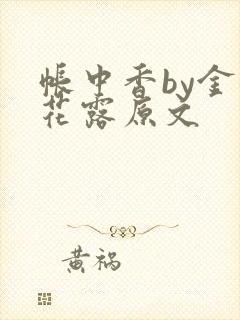 帐中香by金
花露原文
黄祸